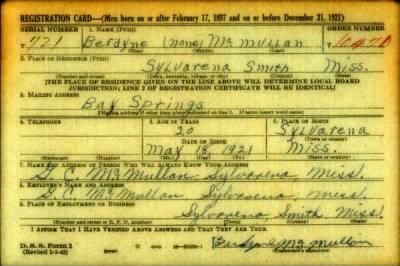 REGISTRATION CARD—(Men born on or after February 17, 1897 and on or before December 31, 1921)
SERIAL NUMBER 1. NAME (Print) ORDER NUMBER
T 721 Berdyne (none) McMullan T 10470
(First) (Middle) (Last)
2. PLACE OF RESIDENCE (Print)
Sylvarena Smith Miss.
(Number and street) (Town, township, village, or city) (County) (State)
[THE PLACE OF RESIDENCE GIVEN ON THE LINE ABOVE WILL DETERMINE LOCAL BOARD
JURISDICTION; LINE 2 OF REGISTRATION CERTIFICATE WILL BE IDENTICAL]
3. MAILING ADDRESS
Bay Springs
[Mailing address if other than place indicated on line 2. If same insert word same]
4. TELEPHONE 5. AGE IN YEARS 6. PLACE OF BIRTH
20 Sylvarena
DATE OF BIRTH (Town or county)
May 18, 1921 Miss.
(Exchange) (Number) (Mo.) (Day) (Yr.) (State or country)
7. NAME AND ADDRESS OF PERSON WHO WILL ALWAYS KNOW YOUR ADDRESS
G. C. McMullan Sylvarena, Miss.
8. EMPLOYER'S NAME AND ADDRESS
G. C. McMullan Sylvarena, Miss
9. PLACE OF EMPLOYMENT OR BUSINESS
Sylvarena Smith Miss.
(Number and street or R. F. D. number) (Town) (County) (State)
I AFFIRM THAT I HAVE VERIFIED ABOVE ANSWERS AND THAT THEY ARE TRUE.
D. S. S. Form 1 Berdyne McMullan
(Revised 1-1-42) (Registrant's signature)